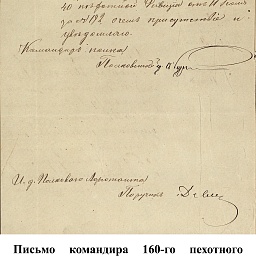 40 пехотной дивизии отъ 11 Июля
за № 192 очень присутствiе и
увѣдомляю.
Командиръ полка
Полковникъ
И. д. Полковаго Адъютанта
Поручикъ
Письмо командира 160-го пехотного